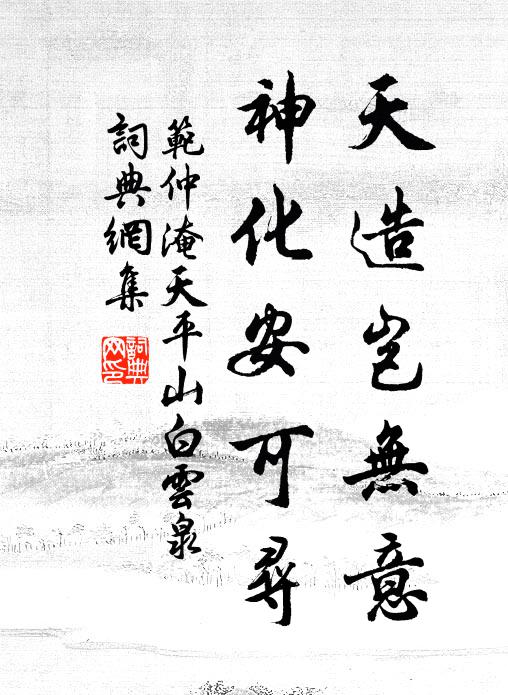 天造岂無意
神化安可尋
範仲淹天平山白雲泉
詞典網集
詞典網印